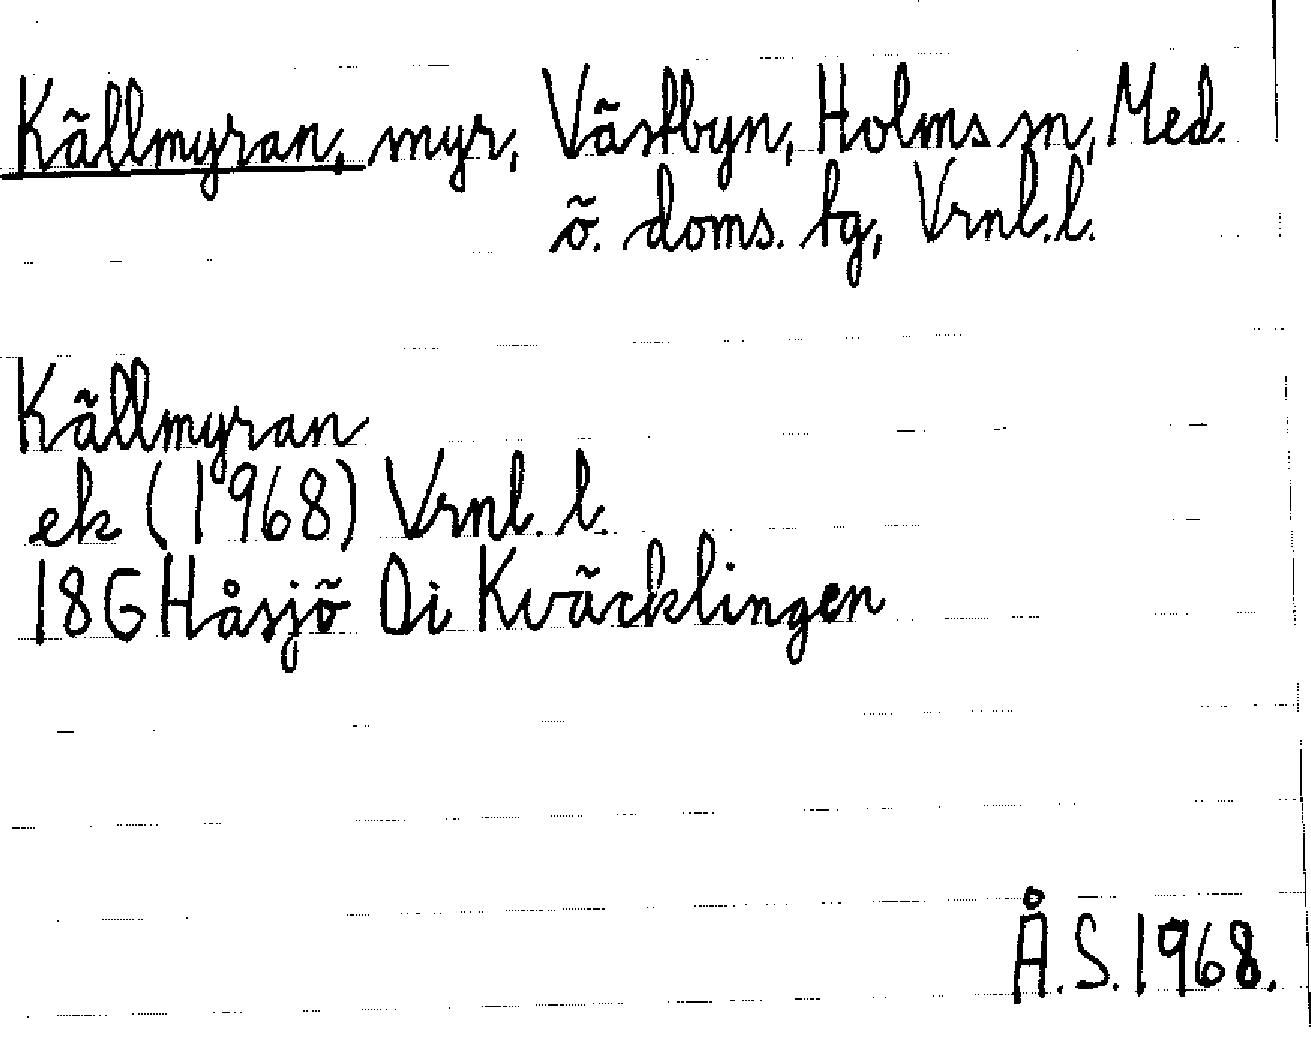 Källmyran, myr, Västbyn, Holms sn, Med.
ö. doms. tg, Vrnl.l.
Källmyran
ek (1968) Vrnl. l.
18G Håsjö Di Kväcklingen
Å.S. 1968.